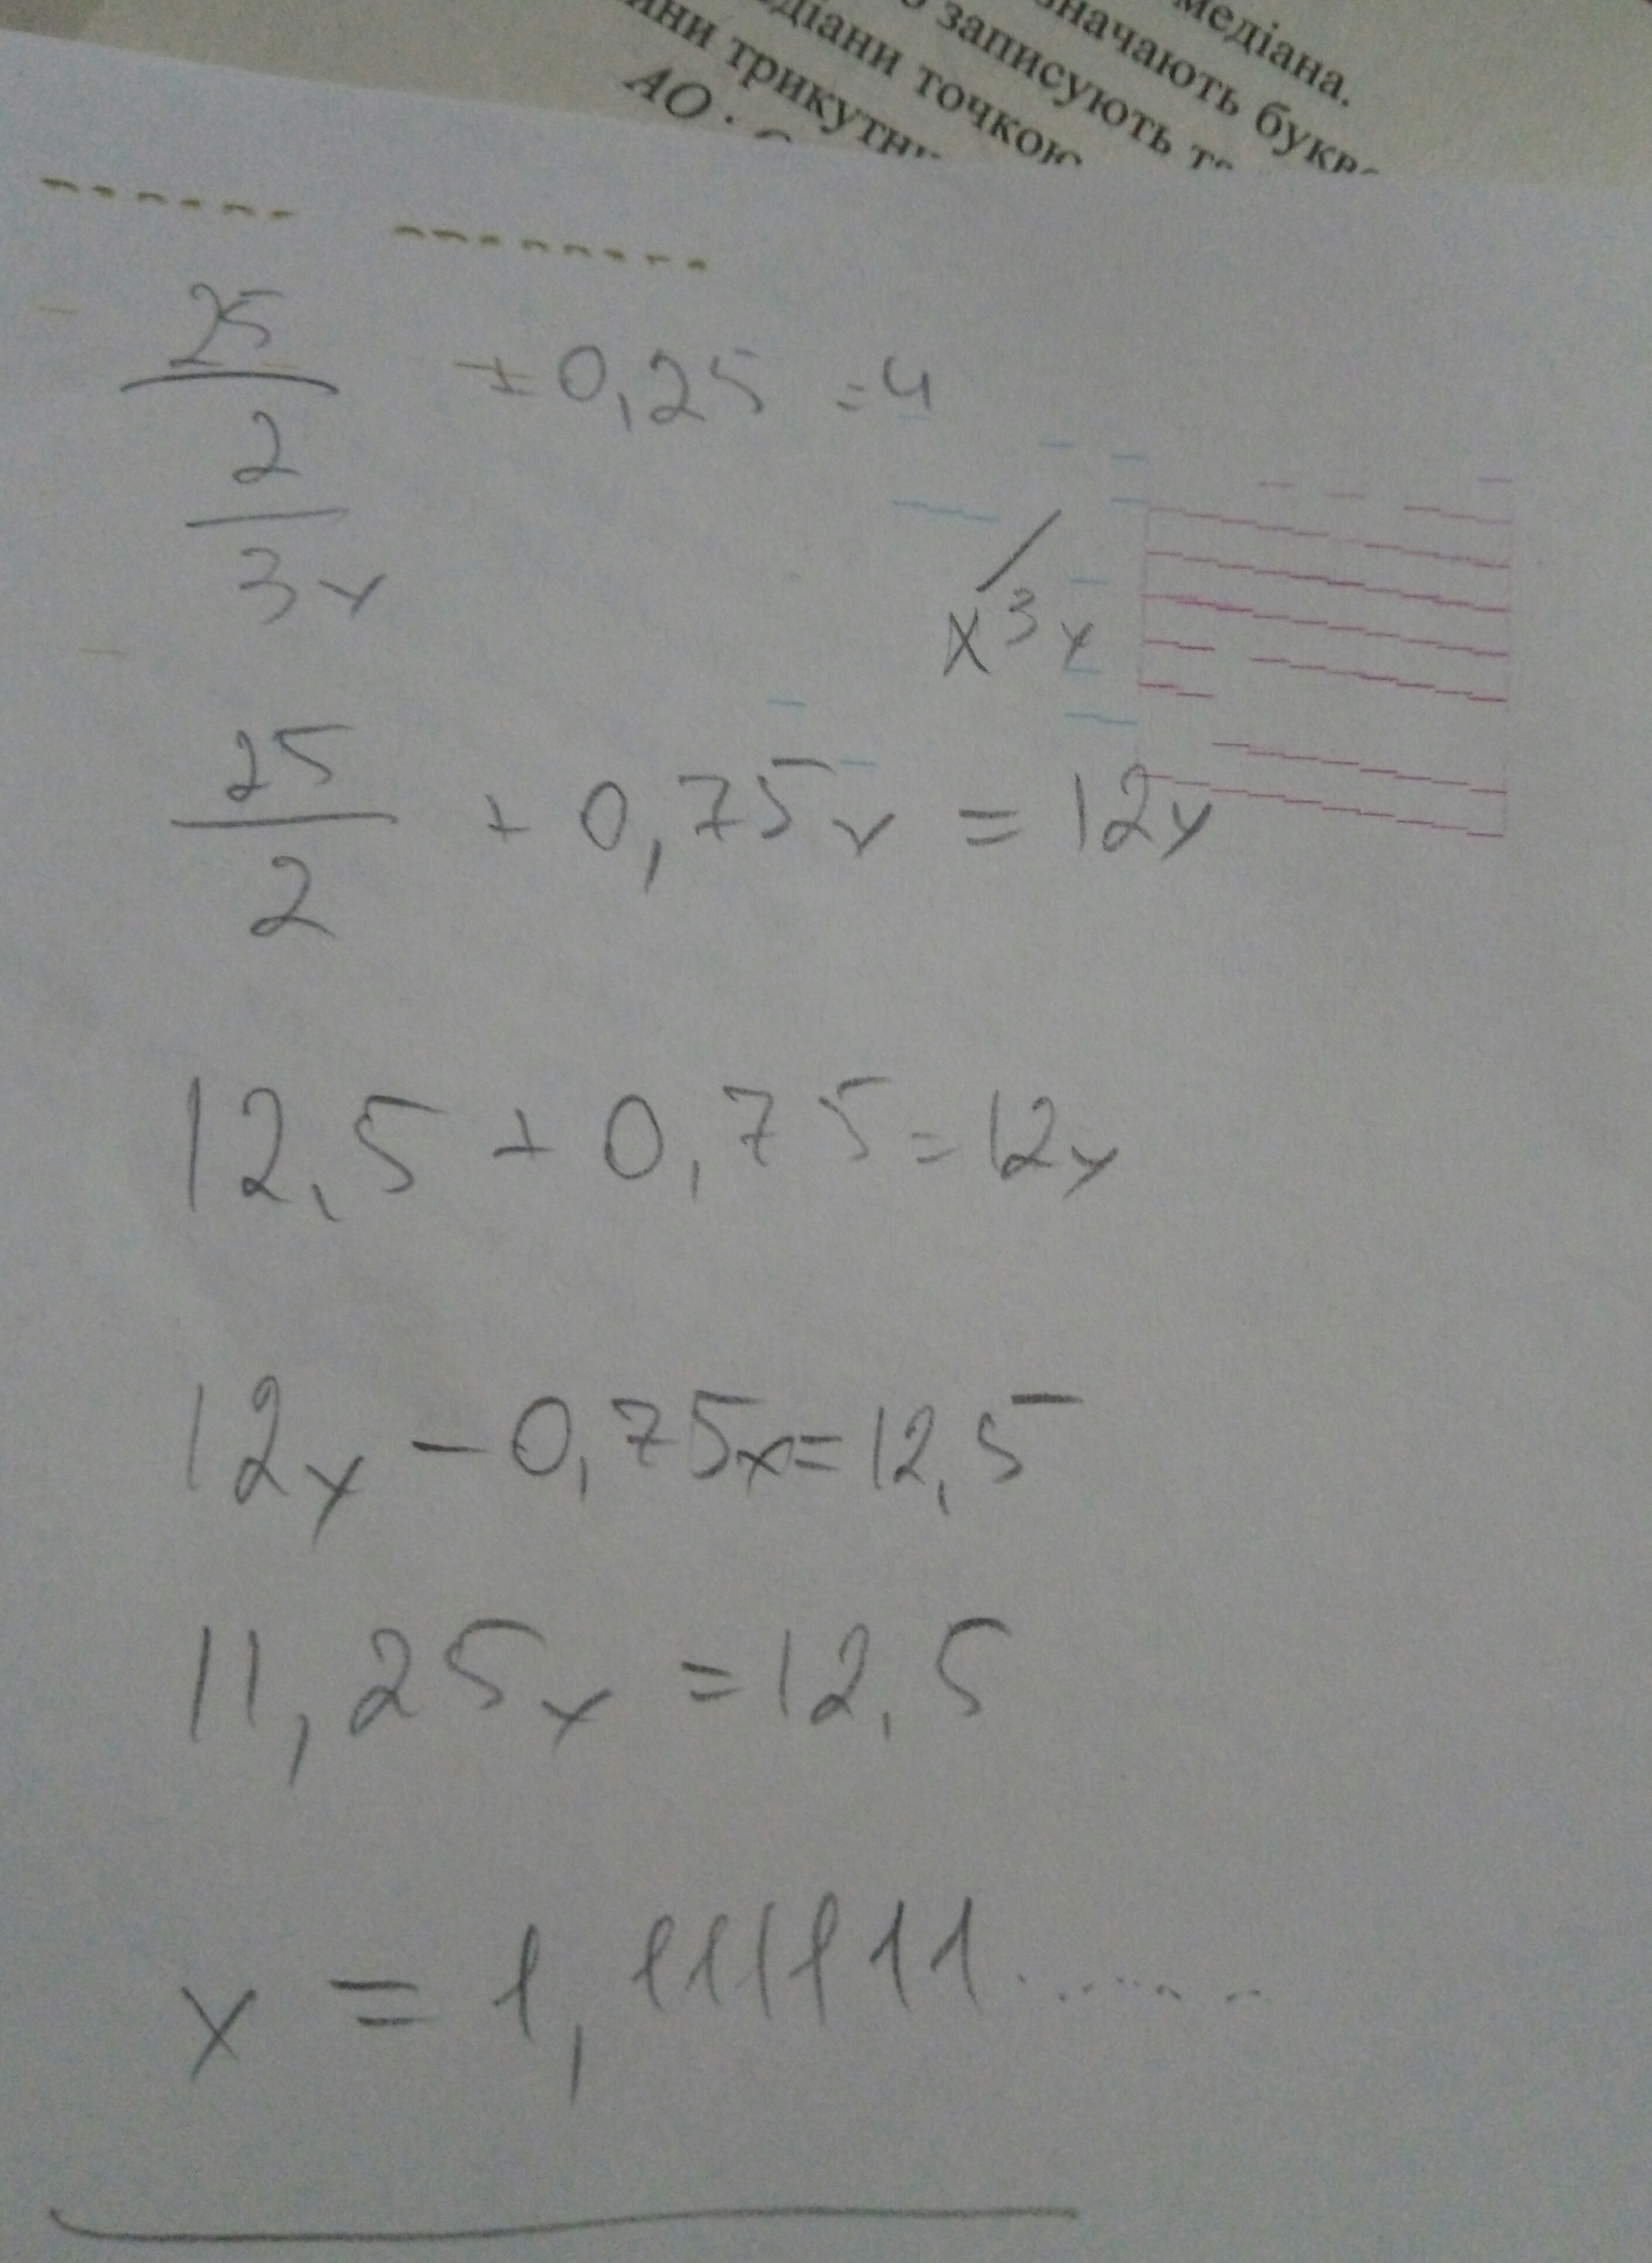 медіана.
значають букв
записують т
діани точкою
ини трикутн
АО :
25
2
3x
+ 0,25 = 4
/ x 3x
25
2
+ 0,75x = 12x
12,5 + 0,75 = 12x
12x - 0,75x = 12,5
11,25x = 12,5
x = 1,1111111.......